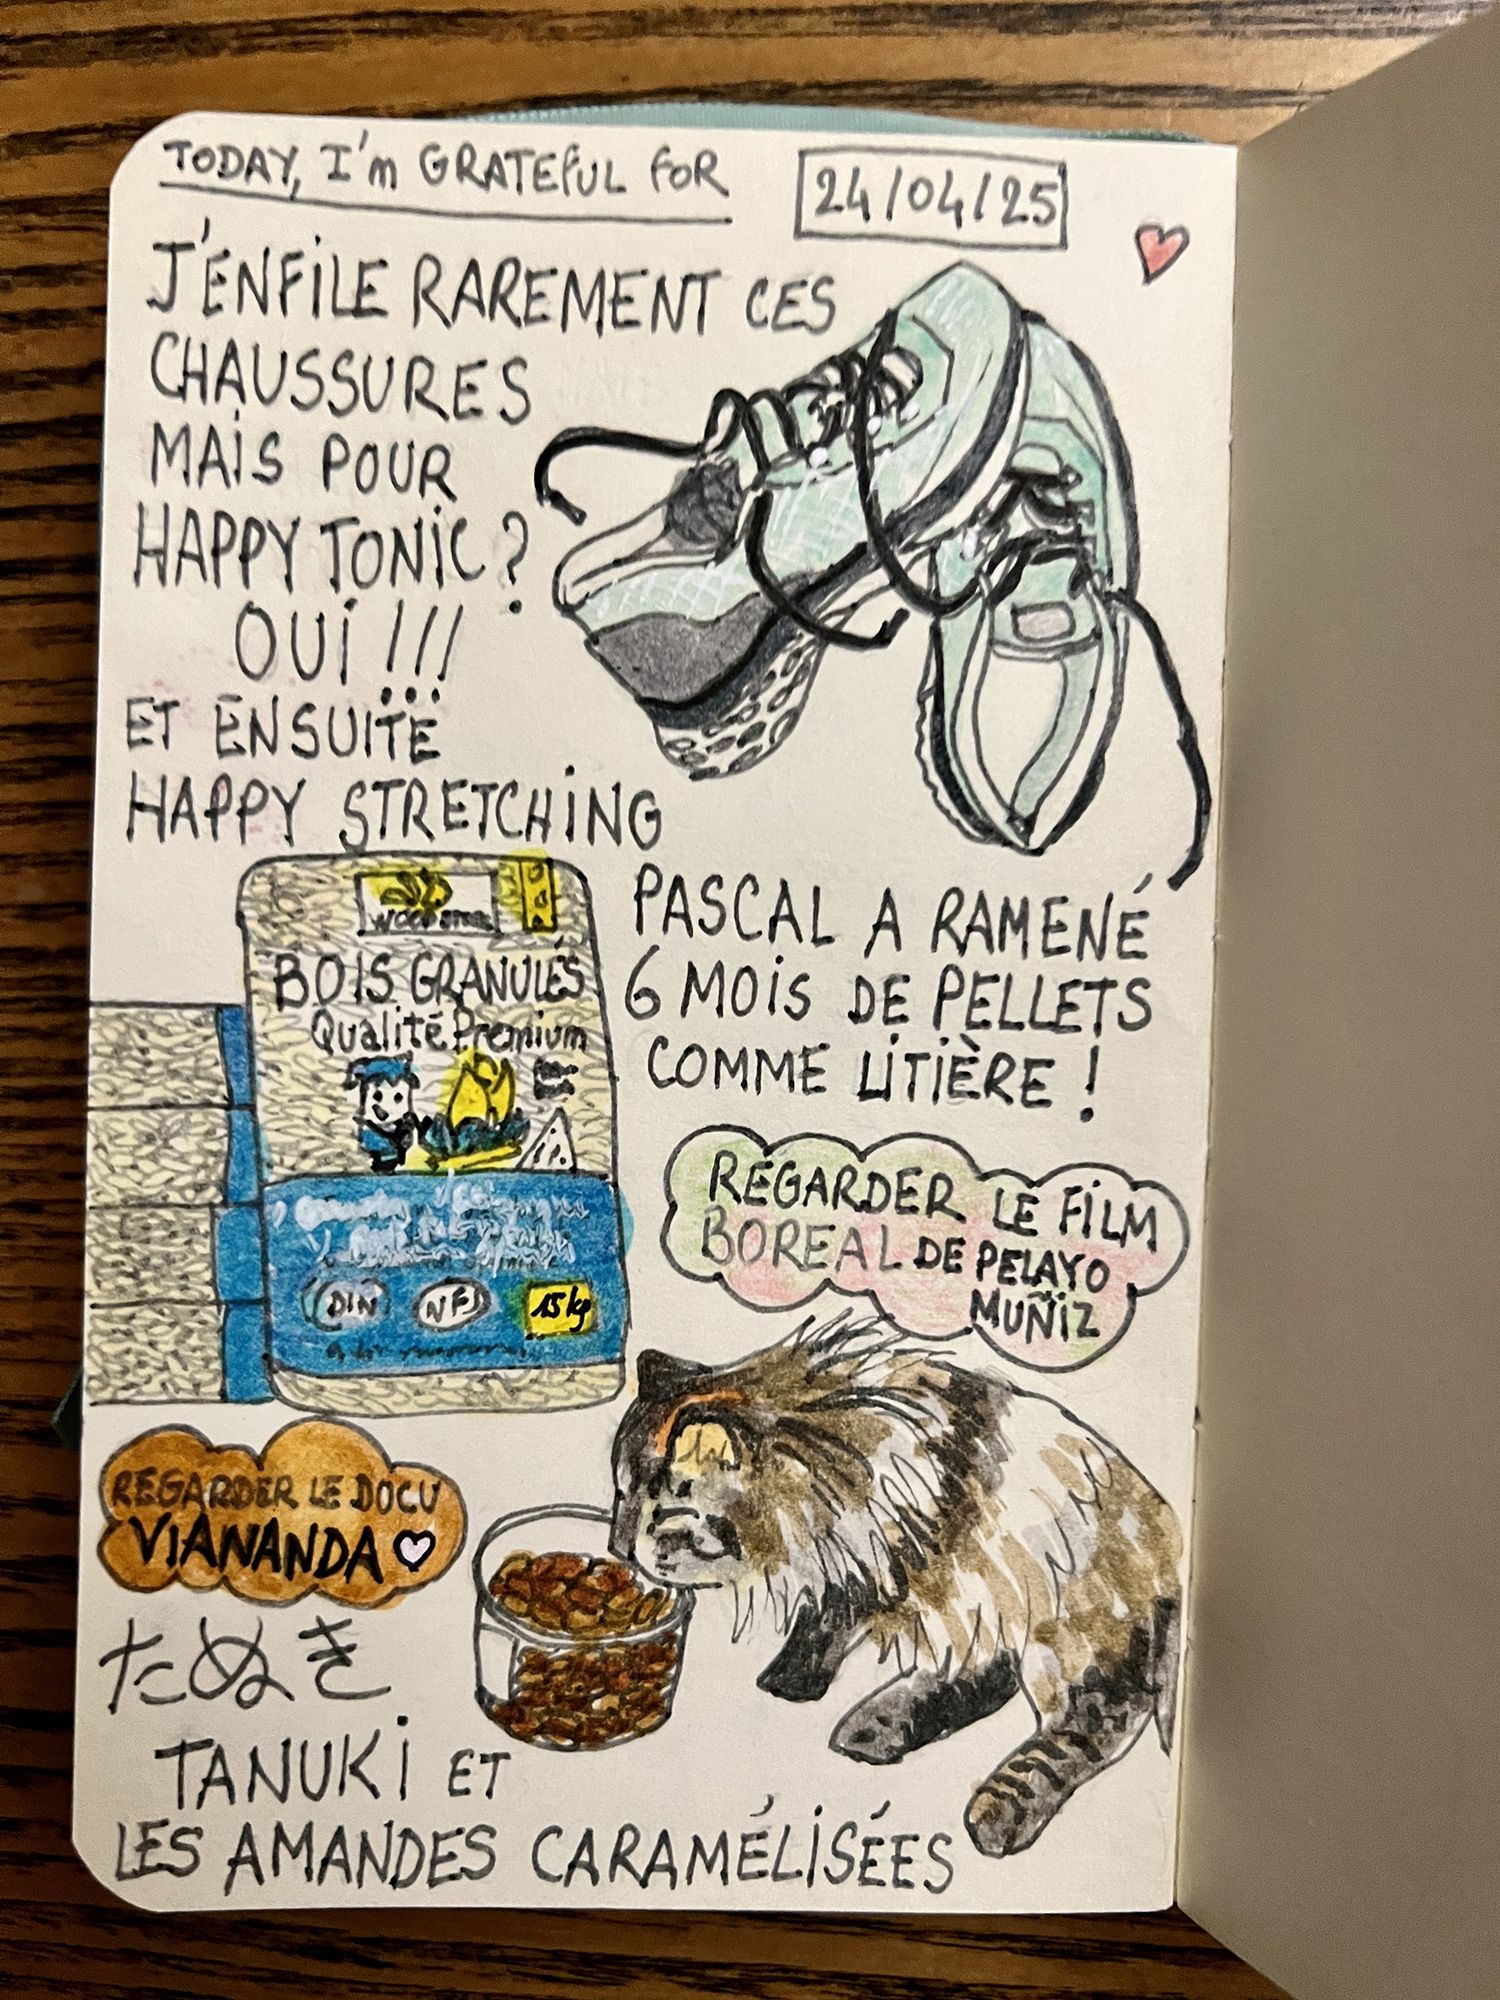 TODAY, I'm GRATEFUL FOR
24/04/25
J'ENFILE RAREMENT CES
CHAUSSURES
MAIS POUR
HAPPY TONIC ?
OUI !!!
ET ENSUITE
HAPPY STRETCHING
BOIS GRANULÉS
Qualité Premium
DIN
15 kg
PASCAL A RAMENÉ
6 MOIS DE PELLETS
COMME LITIÈRE !
REGARDER LE FILM
BOREAL DE PELAYO
MUÑIZ
REGARDER LE DOCU
VIANANDA
たぬき
TANUKI ET
LES AMANDES CARAMÉLISÉES